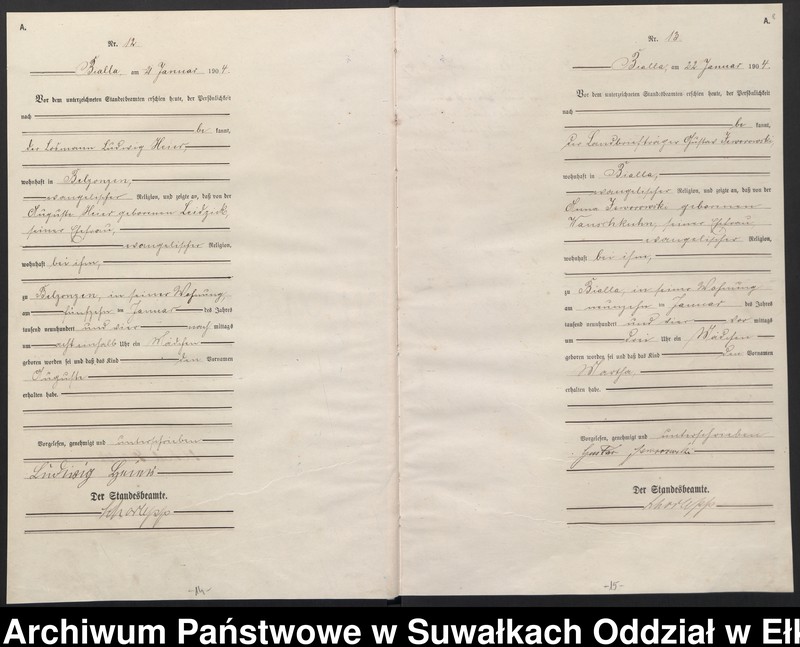 A.
Nr. 12
Bialla, am 21 Januar 1904.
Vor dem unterzeichneten Standesbeamten erschien heute, der Persönlichkeit
nach
be kannt,
der Losmann Ludwig Heier,
wohnhaft in Belzonzen,
evangelischer Religion, und zeigte an, daß von der
Auguste Heier geborenen
seiner Ehefrau,
evangelischer Religion,
wohnhaft bei ihm,
zu Belzonzen, in seiner Wohnung,
am fünfzehn ten Januar des Jahres
tausend neunhundert und vier nach mittags
um acht einhalb Uhr ein Mädchen
geboren worden sei und daß das Kind den Vornamen
Auguste
erhalten habe.
Vorgelesen, genehmigt und unterschrieben
Ludwig Heier
Der Standesbeamte.
-14-
A.
Nr. 13.
Bialla, am 22 Januar 1904.
Vor dem unterzeichneten Standesbeamten erschien heute, der Persönlichkeit
nach
be kannt,
der Landbriefträger Gustav Jeworowski,
wohnhaft in Bialla,
evangelischer Religion, und zeigte an, daß von der
Anna Jeworowski geborenen
seiner Ehefrau
evangelischer Religion,
wohnhaft bei ihm,
zu Bialla, in seiner Wohnung
am neunzehn ten Januar des Jahres
tausend neunhundert und vier vor mittags
um drei Uhr ein Mädchen
geboren worden sei und daß das Kind den Vornamen
Martha
erhalten habe.
Vorgelesen, genehmigt und unterschrieben
Gustav Jeworowski
Der Standesbeamte.
-15-
Archiwum Państwowe w Suwałkach Oddział w Ełk